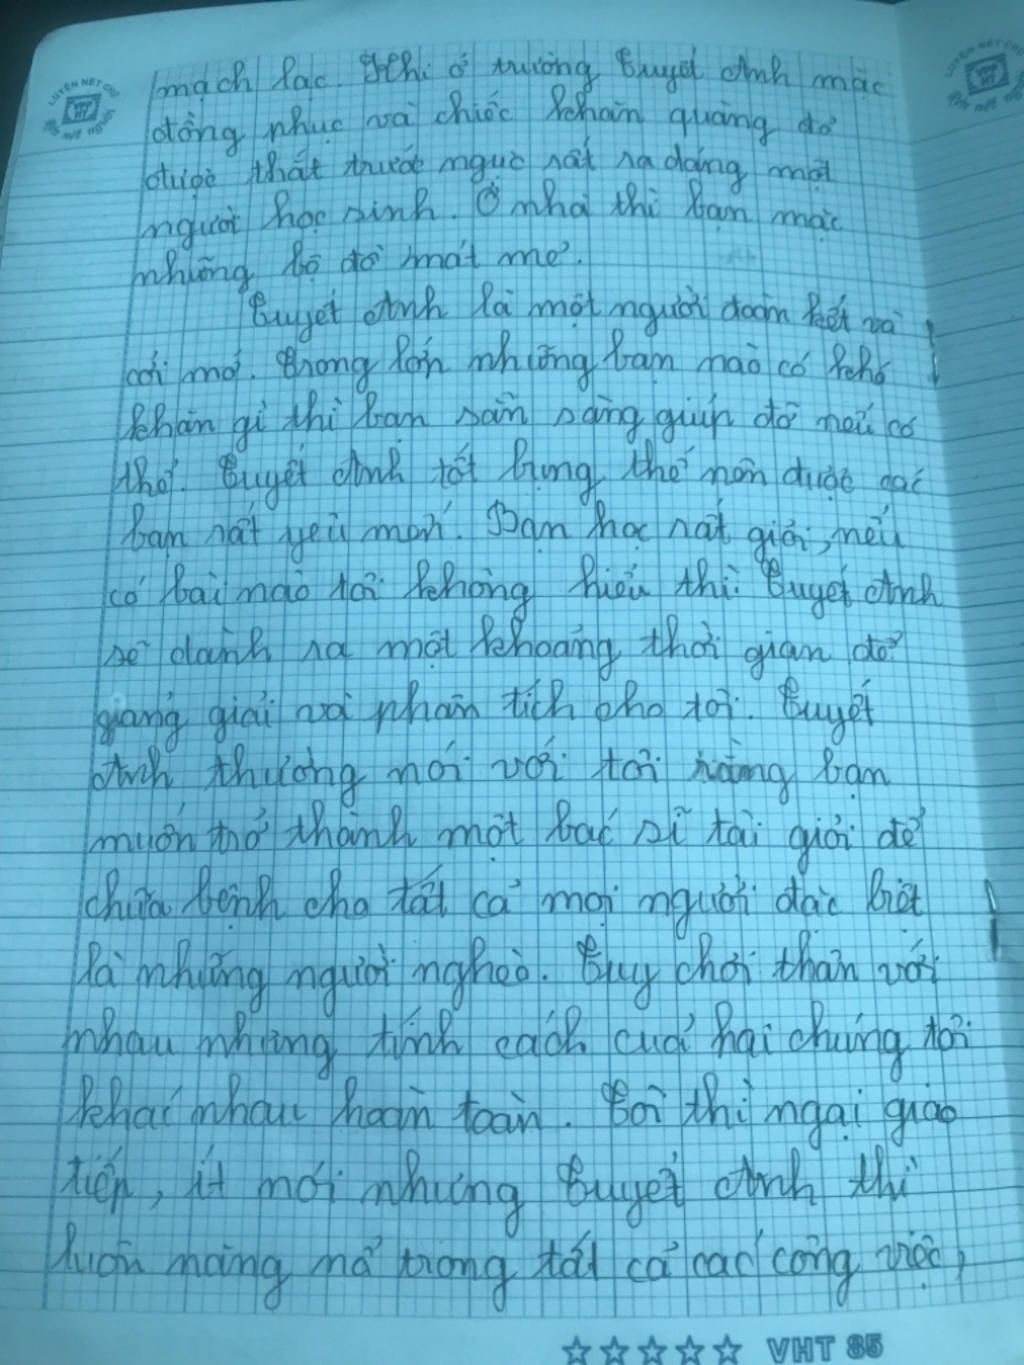 mạch lạc. Khi ở trường Tuyết Anh mặc
đồng phục và chiếc khăn quàng đỏ
được thắt trước ngực rất ra dáng một
người học sinh. Ở nhà thì bạn mặc
những bộ đồ mát mẻ.
Tuyết Anh là một người đoàn kết và
cởi mở. Trong lớp những bạn nào có khó
khăn gì thì bạn sẵn sàng giúp đỡ nếu có
thể. Tuyết Anh tốt bụng thế nên được các
bạn rất yêu mến. Bạn học rất giỏi, nếu
có bài nào tôi không hiểu thì Tuyết Anh
sẽ dành ra một khoảng thời gian để
giảng giải và phân tích cho tôi. Tuyết
Anh thường nói với tôi rằng bạn
muốn trở thành một bác sĩ tài giỏi để
chữa bệnh cho tất cả mọi người đặc biệt
là những người nghèo. Tuy chơi thân với
nhau nhưng tính cách của hai chúng tôi
khác nhau hoàn toàn. Tôi thì ngại giao
tiếp, ít nói nhưng Tuyết Anh thì
luôn năng nổ trong tất cả các công việc,
VHT 85
LUYỆN NÉT CHỮ